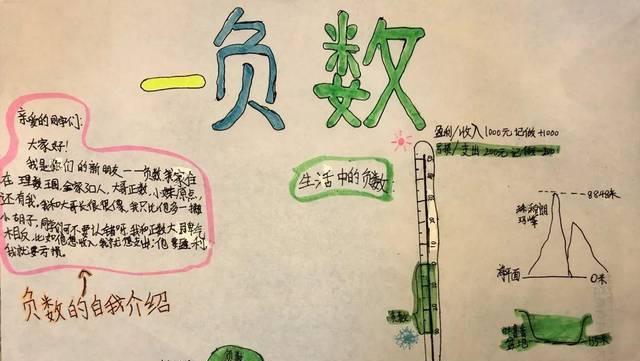 一负数
亲爱的同学们:
大家好!
我是你们的新朋友一一负数,家住
在理数王国,全家3口人,大哥正数,小妹原点,
还有我,我和大哥长很想像,我只比他多一撇
小胡子,同学们可不要认错呀,我和正数大哥脾气
相反,比如他想收入,我就想支出;他要盈利,
我就要亏损。
负数的自我介绍
生活中的负数:
盈利/收入1000元 记做+1000
支出
记做
8848米
珠穆朗
玛峰
海平面
0米
盆地
负数